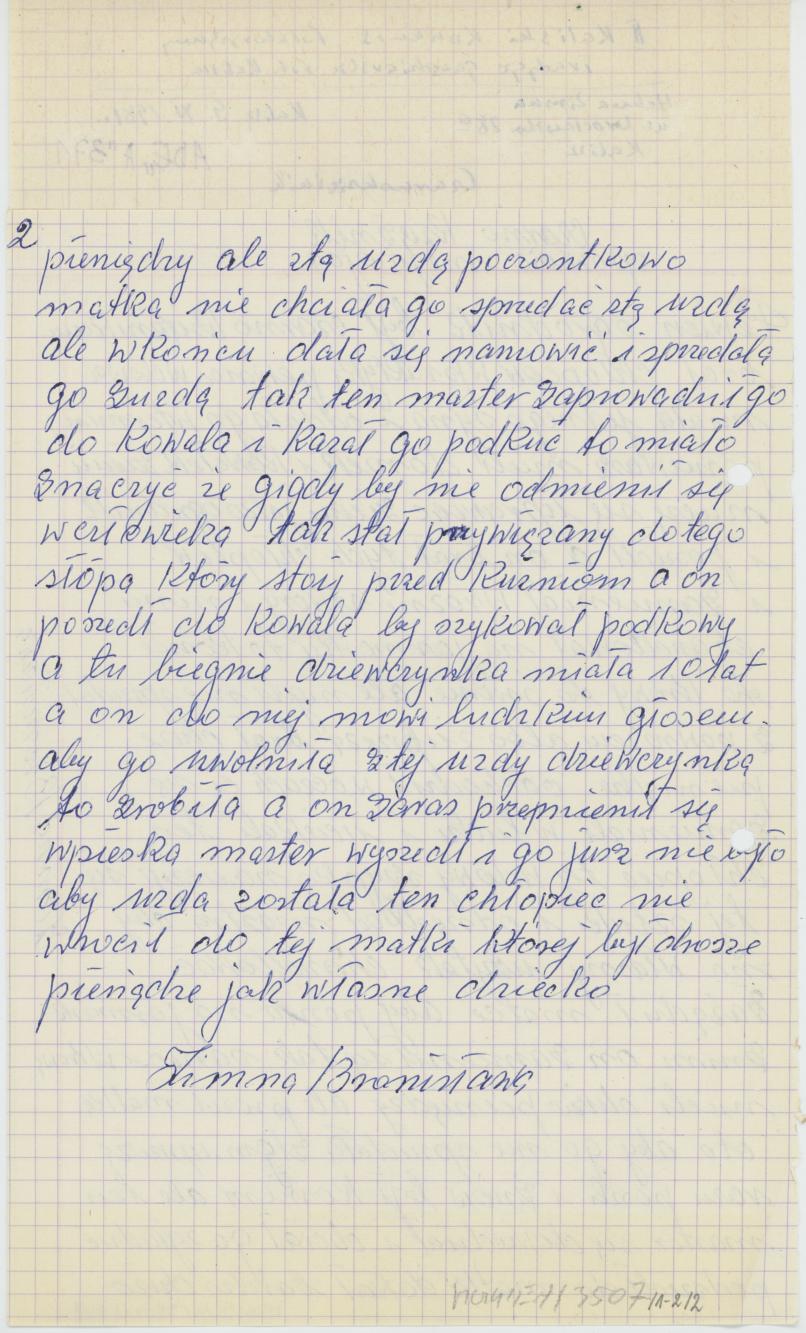 2
pieniędzy ale stą uzdą poczontkowo
matka nie chciała go spredać stą uzdą
ale wkońcu dała się namowić i sprzedała
go zuzdą tak ten master zaprowadził go
do Kowala i Kazał go podkuć to miało
znaczyć że gigdy by nie odmienił się
wczłowieka tak stał przywięzany dotego
słópa Który stoij przed Kuzniom a on
poszedł do Kowala by szykował podkowy
a tu biegnie dziewczynka miała 10 lat
a on do niej mowi ludzkim głosem.
aby go uwolniła ztej uzdy dziewczynka
to zrobiła a on zaras przemienił się
wpieska master wyszedł i go jusz nie było
aby uzda została ten chłopiec nie
wrocił do tej matki Której był drosze
pieniądze jak własne dziecko
Zimna Bronisława
3507/1-2/2